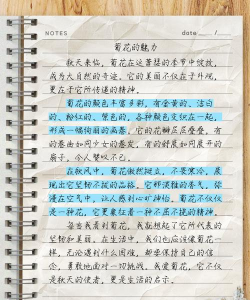 NOTES
date
菊花的魅力
秋天来临，菊花在这萧瑟的季节中绽放，
成为大自然的奇迹。它的美丽不仅在于外观，
更在于它所传递的精神。
菊花的颜色丰富多彩，有金黄的、洁白
的、粉红的、紫色的，各种颜色交织在一起，
形成一幅绚丽的画卷。它的花瓣层层叠叠，有
的卷曲如同少女的卷发，有的舒展如同展开的
扇子，令人赞叹不已。
在秋风中，菊花傲然挺立，不畏寒冷，展
现出它坚韧不拔的品格。它那淡雅的香气，弥
漫在空气中，让人感到心旷神怡。菊花不仅仅
是一种花，它更象征着一种不屈不挠的精神。
每当我看到菊花，我就想起了它所代表的
坚韧和美丽。在生活中，我们也应该像菊花一
样，无论遇到什么困难，都要保持自己的信
念，勇敢地面对一切挑战。我爱菊花，它不仅
是秋天的使者，更是生命的启示。